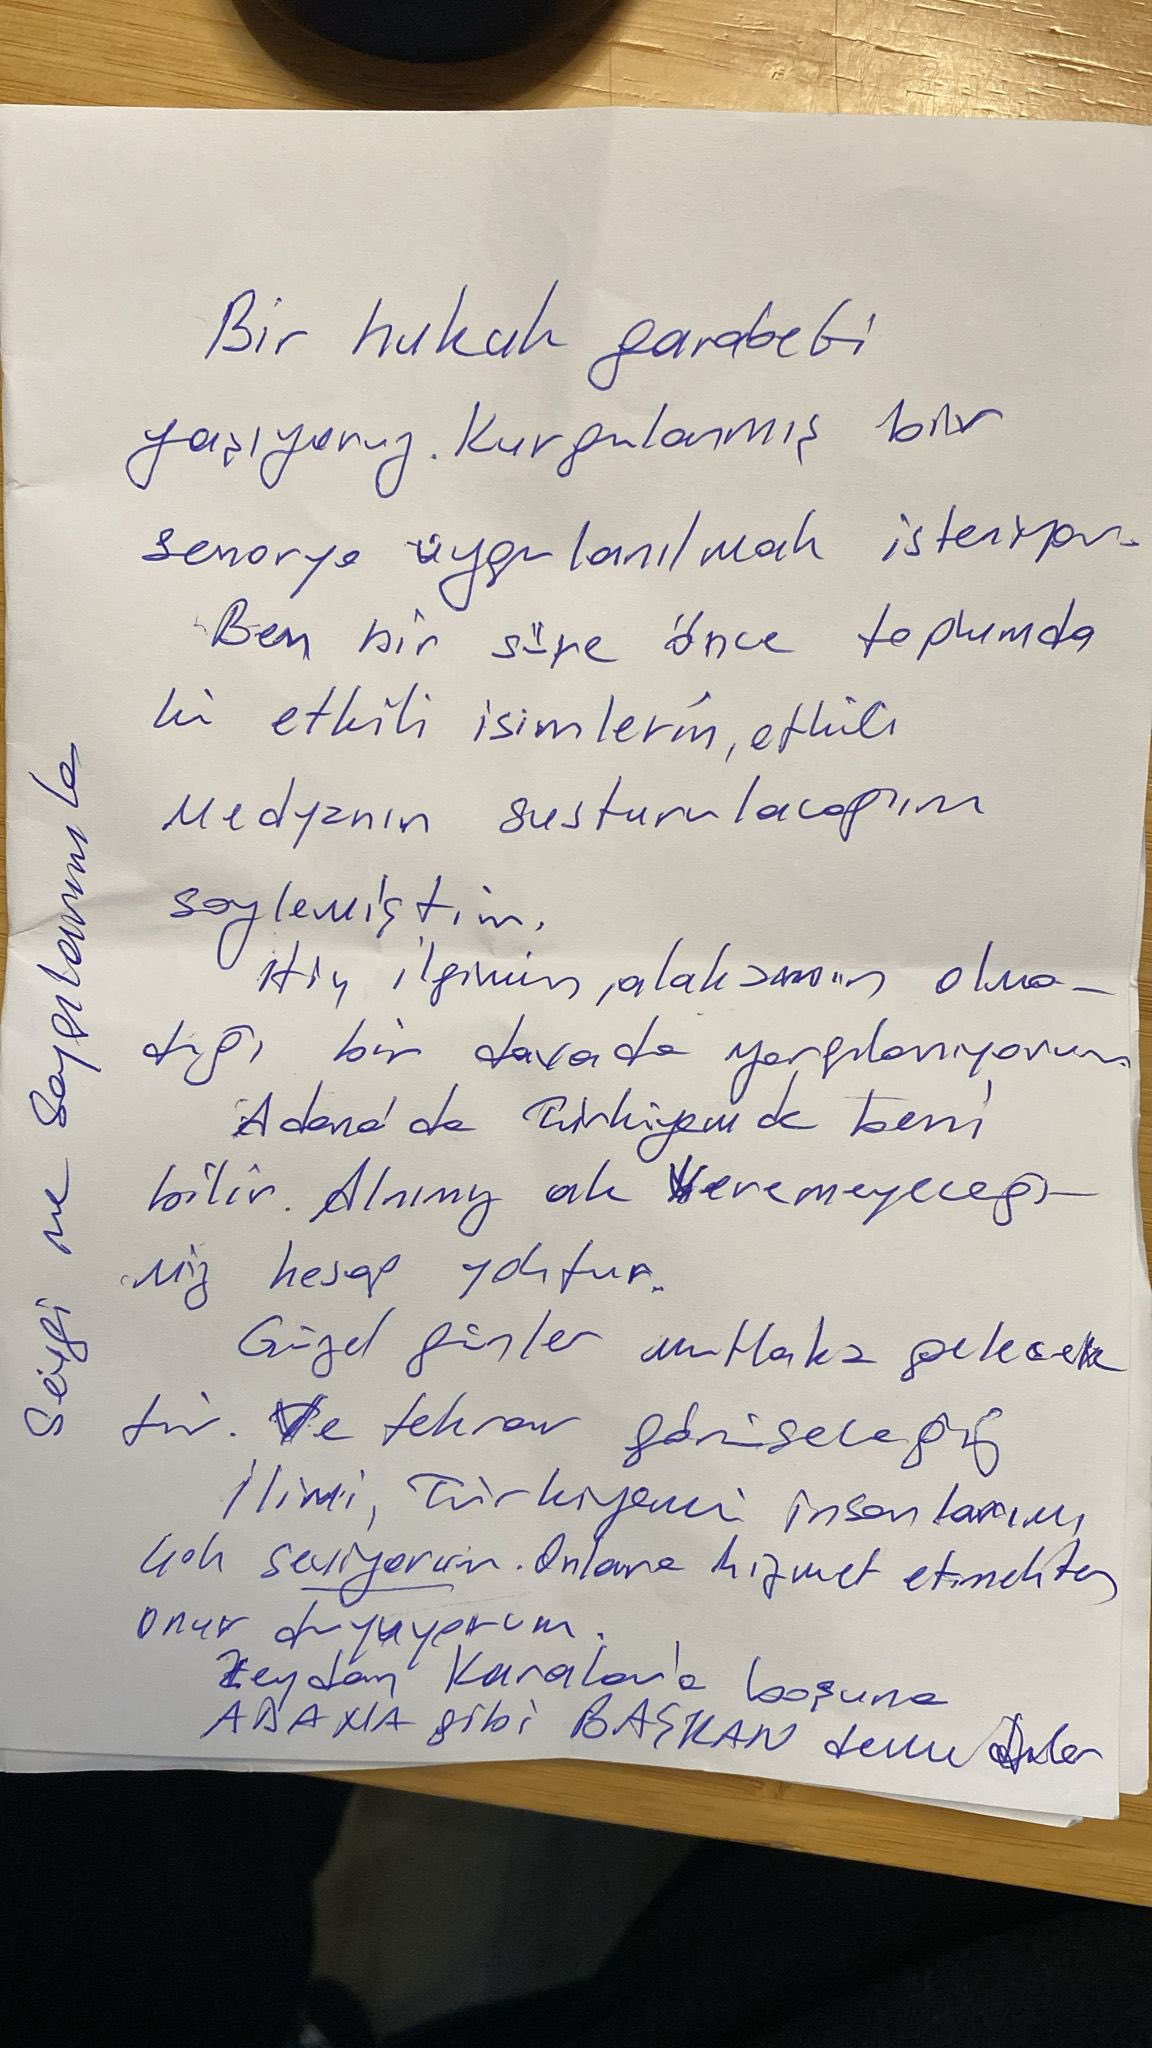 Bir hukuk garabeti
yaşıyoruz. Kurgulanmış bir
senorya uygulanılmak isteniyor.
Ben bir süre önce toplumda
ki etkili isimlerin, etkili
medyanın susturulacağını
söylemiştim.
Hiç ilgimin, alakamın olma-
dığı bir davada yargılanıyorum.
Adana'da Türkiyemde beni
bilir. Alnımız ak Veremeyeceği-
miz hesap yoktur.
Güzel günler mutlaka gelecek
tir. Ve tekrar görüşeceğiz
İlimi, Türkiyemi insanlarımı
çok seviyorum. Onlara hizmet etmekten
onur duyuyorum.
Zeydan Karalar'a boşuna
ADANA gibi BAŞKAN demediler
Sevgi ve Saygılarımla